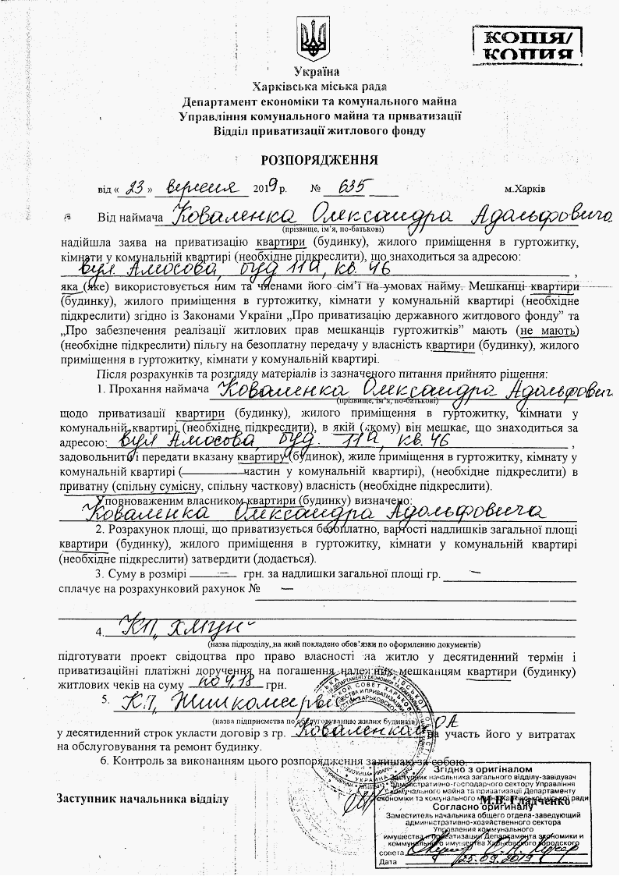 КОПІЯ/
КОПИЯ
Україна
Харківська міська рада
Департамент економіки та комунального майна
Управління комунального майна та приватизації
Відділ приватизації житлового фонду
РОЗПОРЯДЖЕННЯ
від « 23 » вересня 2019 р. № 635 м.Харків
Від наймача Коваленка Олександра Адальфовича
(прізвище, ім'я, по-батькові)
надійшла заява на приватизацію квартири (будинку), жилого приміщення в гуртожитку,
кімнати у комунальній квартирі (необхідне підкреслити), що знаходиться за адресою:
вул Амосова, буд 11а, кв. 46 ,
яка (яке) використовується ним та членами його сім'ї на умовах найму. Мешканці квартири
(будинку), жилого приміщення в гуртожитку, кімнати у комунальній квартирі (необхідне
підкреслити) згідно із Законами України „Про приватизацію державного житлового фонду" та
„Про забезпечення реалізації житлових прав мешканців гуртожитків" мають (не мають)
(необхідне підкреслити) пільгу на безоплатну передачу у власність квартири (будинку), жилого
приміщення в гуртожитку, кімнати у комунальній квартирі.
Після розрахунків та розгляду матеріалів із зазначеного питання прийнято рішення:
1. Прохання наймача Коваленка Олександра Адальфович
(прізвище, ім'я, по-батькові)
щодо приватизації квартири (будинку), жилого приміщення в гуртожитку, кімнати у
комунальній квартирі (необхідне підкреслити), в якій (якому) він мешкає, що знаходиться за
адресою: вул Амосова буд. 11а, кв. 46 ,
задовольнити і передати вказану квартиру (будинок), жиле приміщення в гуртожитку, кімнату у
комунальній квартирі ( частин у комунальній квартирі), (необхідне підкреслити) в
приватну (спільну сумісну, спільну часткову) власність (необхідне підкреслити).
Уповноваженим власником квартири (будинку) визначено:
Коваленка Олександра Адальфовича
2. Розрахунок площі, що приватизується безоплатно, вартості надлишків загальної площі
квартири (будинку), жилого приміщення в гуртожитку, кімнати у комунальній квартирі
(необхідне підкреслити) затвердити (додається).
3. Суму в розмірі — грн. за надлишки загальної площі гр. —
сплачує на розрахунковий рахунок № —
4. КП,
(назва підрозділу, на який покладено обов'язки по оформленню документів)
підготувати проект свідоцтва про право власності на житло у десятиденний термін і
приватизаційні платіжні доручення на погашення належних мешканцям квартири (будинку)
житлових чеків на суму по 4,18 грн.
5. К.П,
(назва підприємства по обслуговуванню жилих будинків)
у десятиденний строк укласти договір з гр. Коваленком ОА на участь його у витратах
на обслуговування та ремонт будинку.
6. Контроль за виконанням цього розпорядження залишаю за собою.
Заступник начальника відділу М.В. Гладченко
Згідно з оригіналом
Заступник начальника загального відділу-завідувач
адміністративно-господарчого сектора Управління
комунального майна та приватизації Департаменту
економіки та комунального майна Харківської міської ради
Согласно оригиналу
Заместитель начальника общего отдела-заведующий
административно-хозяйственного сектора
Управления коммунального
имущества и приватизации Департамента экономики и
коммунального имущества Харьковского городского
совета
Дата 25.09.2019